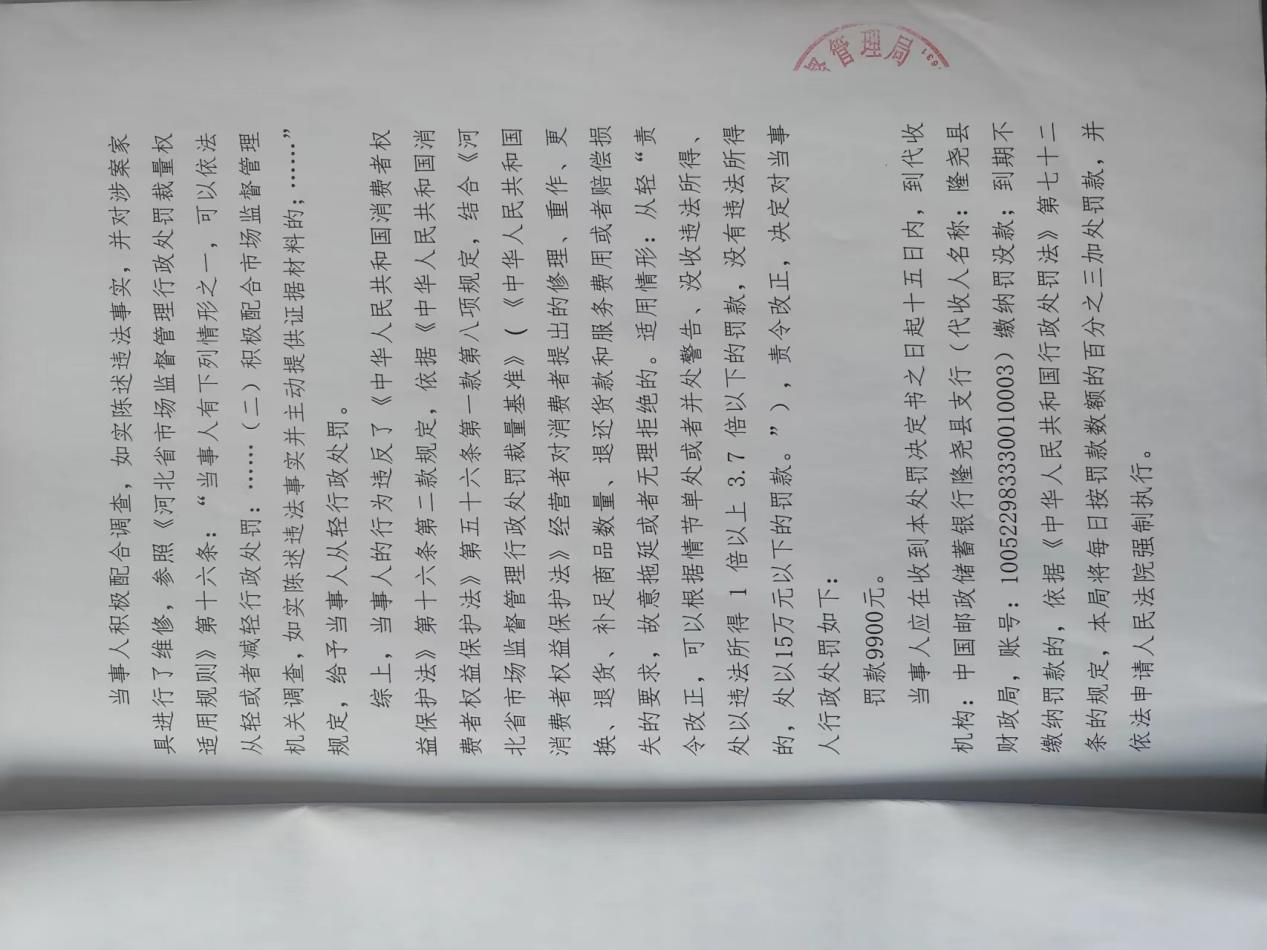 当事人积极配合调查，如实陈述违法事实，并对涉案家
具进行了维修，参照《河北省市场监督管理行政处罚裁量权
适用规则》第十六条：“当事人有下列情形之一，可以依法
从轻或者减轻行政处罚：……（二）积极配合市场监督管理
机关调查，如实陈述违法事实并主动提供证据材料的；……”
规定，给予当事人从轻行政处罚。
综上，当事人的行为违反了《中华人民共和国消费者权
益保护法》第十六条第二款规定，依据《中华人民共和国消
费者权益保护法》第五十六条第一款第八项规定，结合《河
北省市场监督管理行政处罚裁量基准》(《中华人民共和国
消费者权益保护法》经营者对消费者提出的修理、重作、更
换、退货、补足商品数量、退还货款和服务费用或者赔偿损
失的要求，故意拖延或者无理拒绝的。适用情形：从轻“责
令改正，可以根据情节单处或者并处警告、没收违法所得、
处以违法所得 1 倍以上 3.7 倍以下的罚款，没有违法所得
的，处以15万元以下的罚款。”），责令改正，决定对当事
人行政处罚如下：
罚款9900元。
当事人应在收到本处罚决定书之日起十五日内，到代收
机构：中国邮政储蓄银行隆尧县支行（代收人名称：隆尧县
财政局，账号：100522983330010003）缴纳罚没款；到期不
缴纳罚款的，依据《中华人民共和国行政处罚法》第七十二
条的规定，本局将每日按罚款数额的百分之三加处罚款，并
依法申请人民法院强制执行。
管理局